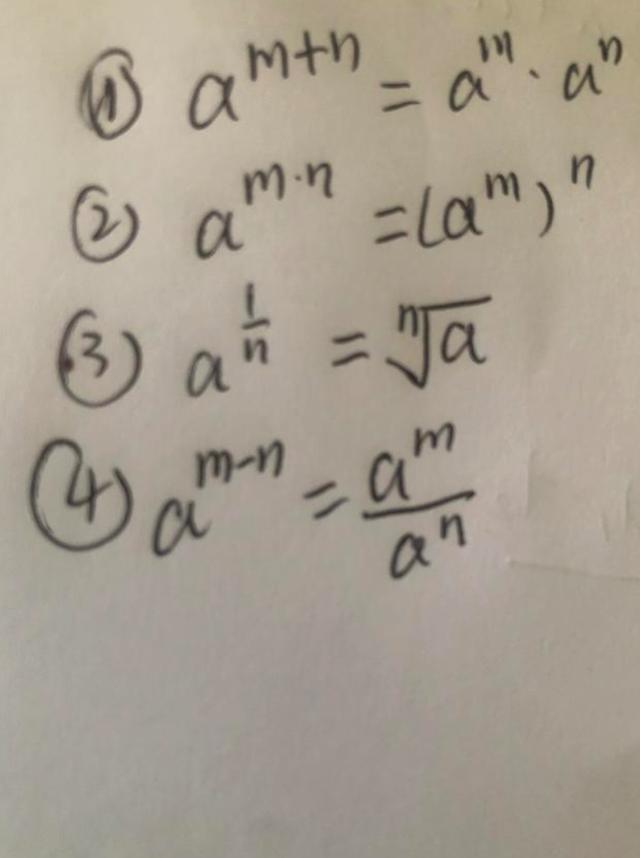 ① a^{m+n} = a^m · a^n
② a^{m·n} = (a^m)^n
③ a^{\frac{1}{n}} = \sqrt[n]{a}
④ a^{m-n} = \frac{a^m}{a^n}